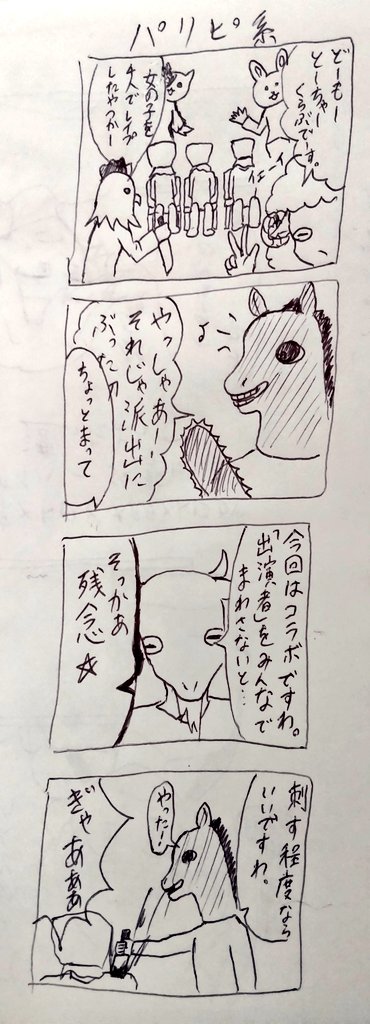 パリピ系
どーもー
とーちゃー
くらぶでーす。
イェーイ
女の子を
4人でレイプ
したやつがー
やっしゃあー、
それじゃ派出に
ぶった
ちょっとまって
今回はコラボですわ。
「出演者」をみんなで
まわさないと…
そっかあ
残念☆
刺す程度なら
いいですわ。
やったー!
ぎゃ
あああ